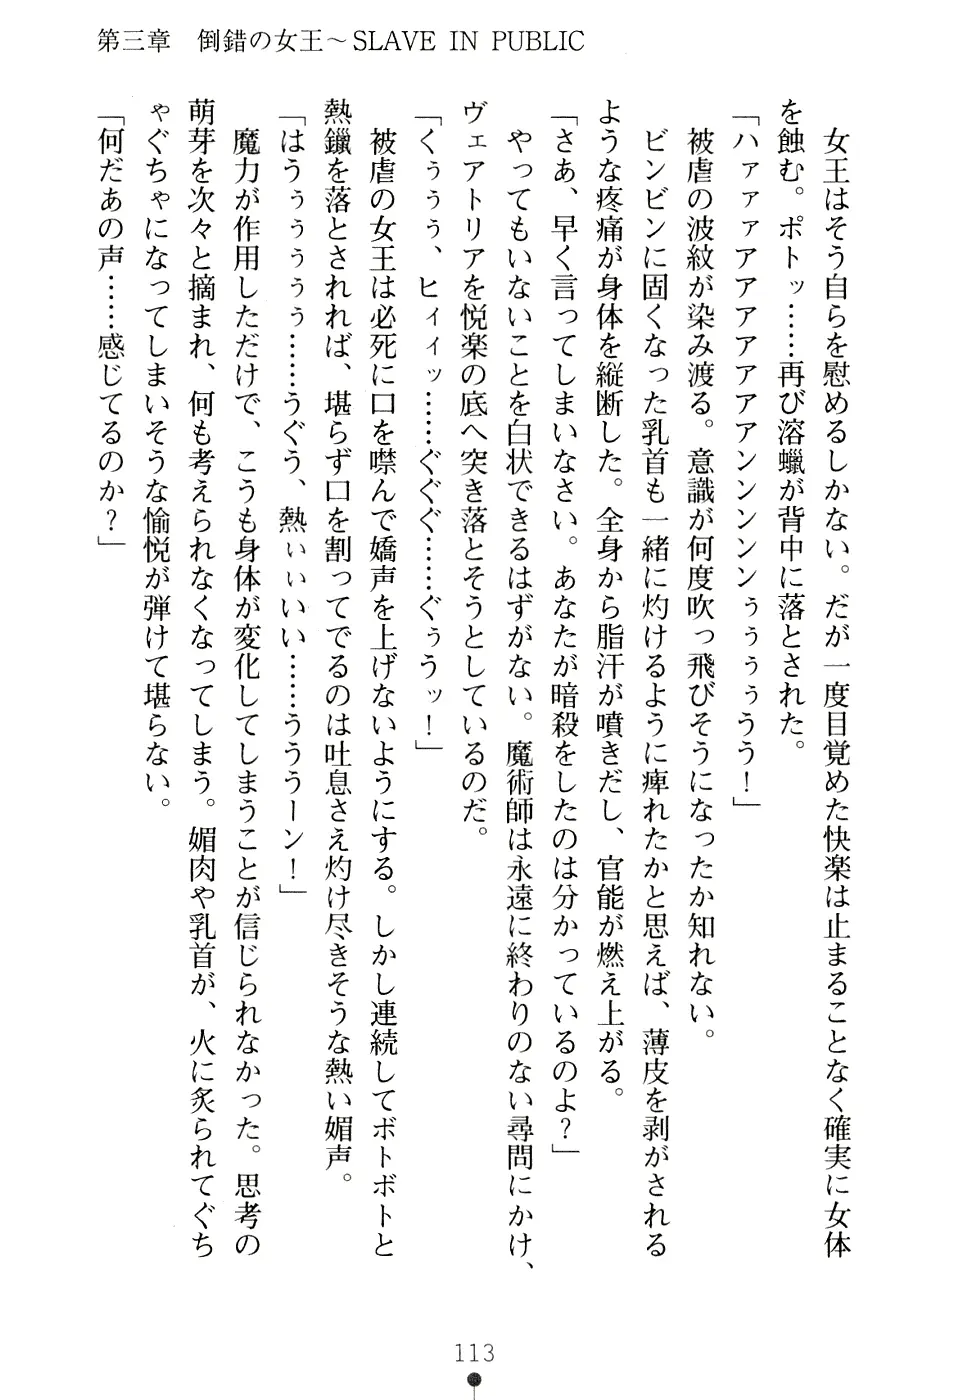 第三章　倒錯の女王～SLAVE IN PUBLIC
　女王はそう自らを慰めるしかない。だが一度目覚めた快楽は止まることなく確実に女体
を蝕む。ポトッ……再び溶蠟が背中に落とされた。
「ハァァァアアアアアアンンンンぅぅぅうう！」
　被虐の波紋が染み渡る。意識が何度吹っ飛びそうになったか知れない。
　ビンビンに固くなった乳首も一緒に灼けるように痺れたかと思えば、薄皮を剥がされる
ような疼痛が身体を縦断した。全身から脂汗が噴きだし、官能が燃え上がる。
「さあ、早く言ってしまいなさい。あなたが暗殺をしたのは分かっているのよ？」
　やってもいないことを白状できるはずがない。魔術師は永遠に終わりのない尋問にかけ、
ヴェアトリアを悦楽の底へ突き落とそうとしているのだ。
「くぅぅぅ、ヒィィッ……ぐぐぐ……ぐぅうッ！」
　被虐の女王は必死に口を噤んで嬌声を上げないようにする。しかし連続してボトボトと
熱鑞を落とされれば、堪らず口を割ってでるのは吐息さえ灼け尽きそうな熱い媚声。
「はうぅぅぅぅ……うぐう、熱ぃぃいい……うううーン！」
　魔力が作用しただけで、こうも身体が変化してしまうことが信じられなかった。思考の
萌芽を次々と摘まれ、何も考えられなくなってしまう。媚肉や乳首が、火に炙られてぐち
ゃぐちゃになってしまいそうな愉悦が弾けて堪らない。
「何だあの声……感じてるのか？」
113